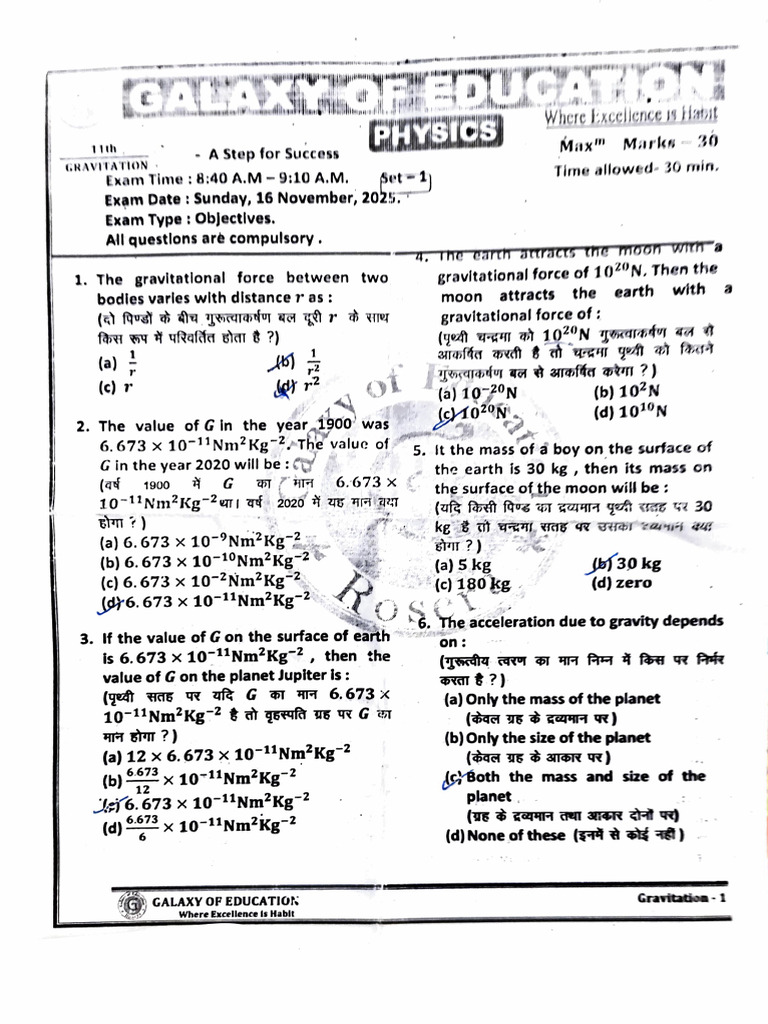 GALAXY OF EDUCATION
Where Excellence is Habit
PHYSICS
11th
GRAVITATION
- A Step for Success
Maxᵐ Marks – 30
Time allowed- 30 min.
Exam Time : 8:40 A.M – 9:10 A.M.
Set – 1
Exam Date : Sunday, 16 November, 2025.
Exam Type : Objectives.
All questions are compulsory .
1. The gravitational force between two
bodies varies with distance r as :
(दो पिण्डों के बीच गुरूत्वाकर्षण बल दूरी r के साथ
किस रूप में परिवर्तित होता है ?)
(a) 1/r (b) 1/r²
(c) r (d) r²
2. The value of G in the year 1900 was
6.673 × 10⁻¹¹Nm²Kg⁻². The value of
G in the year 2020 will be :
(वर्ष 1900 में G का मान 6.673 ×
10⁻¹¹Nm²Kg⁻² था। वर्ष 2020 में यह मान क्या
होगा ?)
(a) 6.673 × 10⁻⁹Nm²Kg⁻²
(b) 6.673 × 10⁻¹⁰Nm²Kg⁻²
(c) 6.673 × 10⁻²Nm²Kg⁻²
(d) 6.673 × 10⁻¹¹Nm²Kg⁻²
3. If the value of G on the surface of earth
is 6.673 × 10⁻¹¹Nm²Kg⁻² , then the
value of G on the planet Jupiter is :
(पृथ्वी सतह पर यदि G का मान 6.673 ×
10⁻¹¹Nm²Kg⁻² है तो वृहस्पति ग्रह पर G का
मान होगा ?)
(a) 12 × 6.673 × 10⁻¹¹Nm²Kg⁻²
(b) 6.673/12 × 10⁻¹¹Nm²Kg⁻²
(c) 6.673 × 10⁻¹¹Nm²Kg⁻²
(d) 6.673/6 × 10⁻¹¹Nm²Kg⁻²
4. The earth attracts the moon with a
gravitational force of 10²⁰N. Then the
moon attracts the earth with a
gravitational force of :
(पृथ्वी चन्द्रमा को 10²⁰N गुरूत्वाकर्षण बल से
आकर्षित करती है तो चन्द्रमा पृथ्वी को कितने
गुरूत्वाकर्षण बल से आकर्षित करेगा ?)
(a) 10⁻²⁰N (b) 10²N
(c) 10²⁰N (d) 10¹⁰N
5. It the mass of a boy on the surface of
the earth is 30 kg , then its mass on
the surface of the moon will be :
(यदि किसी पिण्ड का द्रव्यमान पृथ्वी सतह पर 30
kg है तो चन्द्रमा सतह पर उसका द्रव्यमान क्या
होगा ?)
(a) 5 kg (b) 30 kg
(c) 180 kg (d) zero
6. The acceleration due to gravity depends
on :
(गुरूत्वीय त्वरण का मान निम्न में किस पर निर्भर
करता है ?)
(a) Only the mass of the planet
(केवल ग्रह के द्रव्यमान पर)
(b) Only the size of the planet
(केवल ग्रह के आकार पर)
(c) Both the mass and size of the
planet
(ग्रह के द्रव्यमान तथा आकार दोनों पर)
(d) None of these (इनमें से कोई नहीं)
GALAXY OF EDUCATION
Where Excellence is Habit
Gravitation - 1